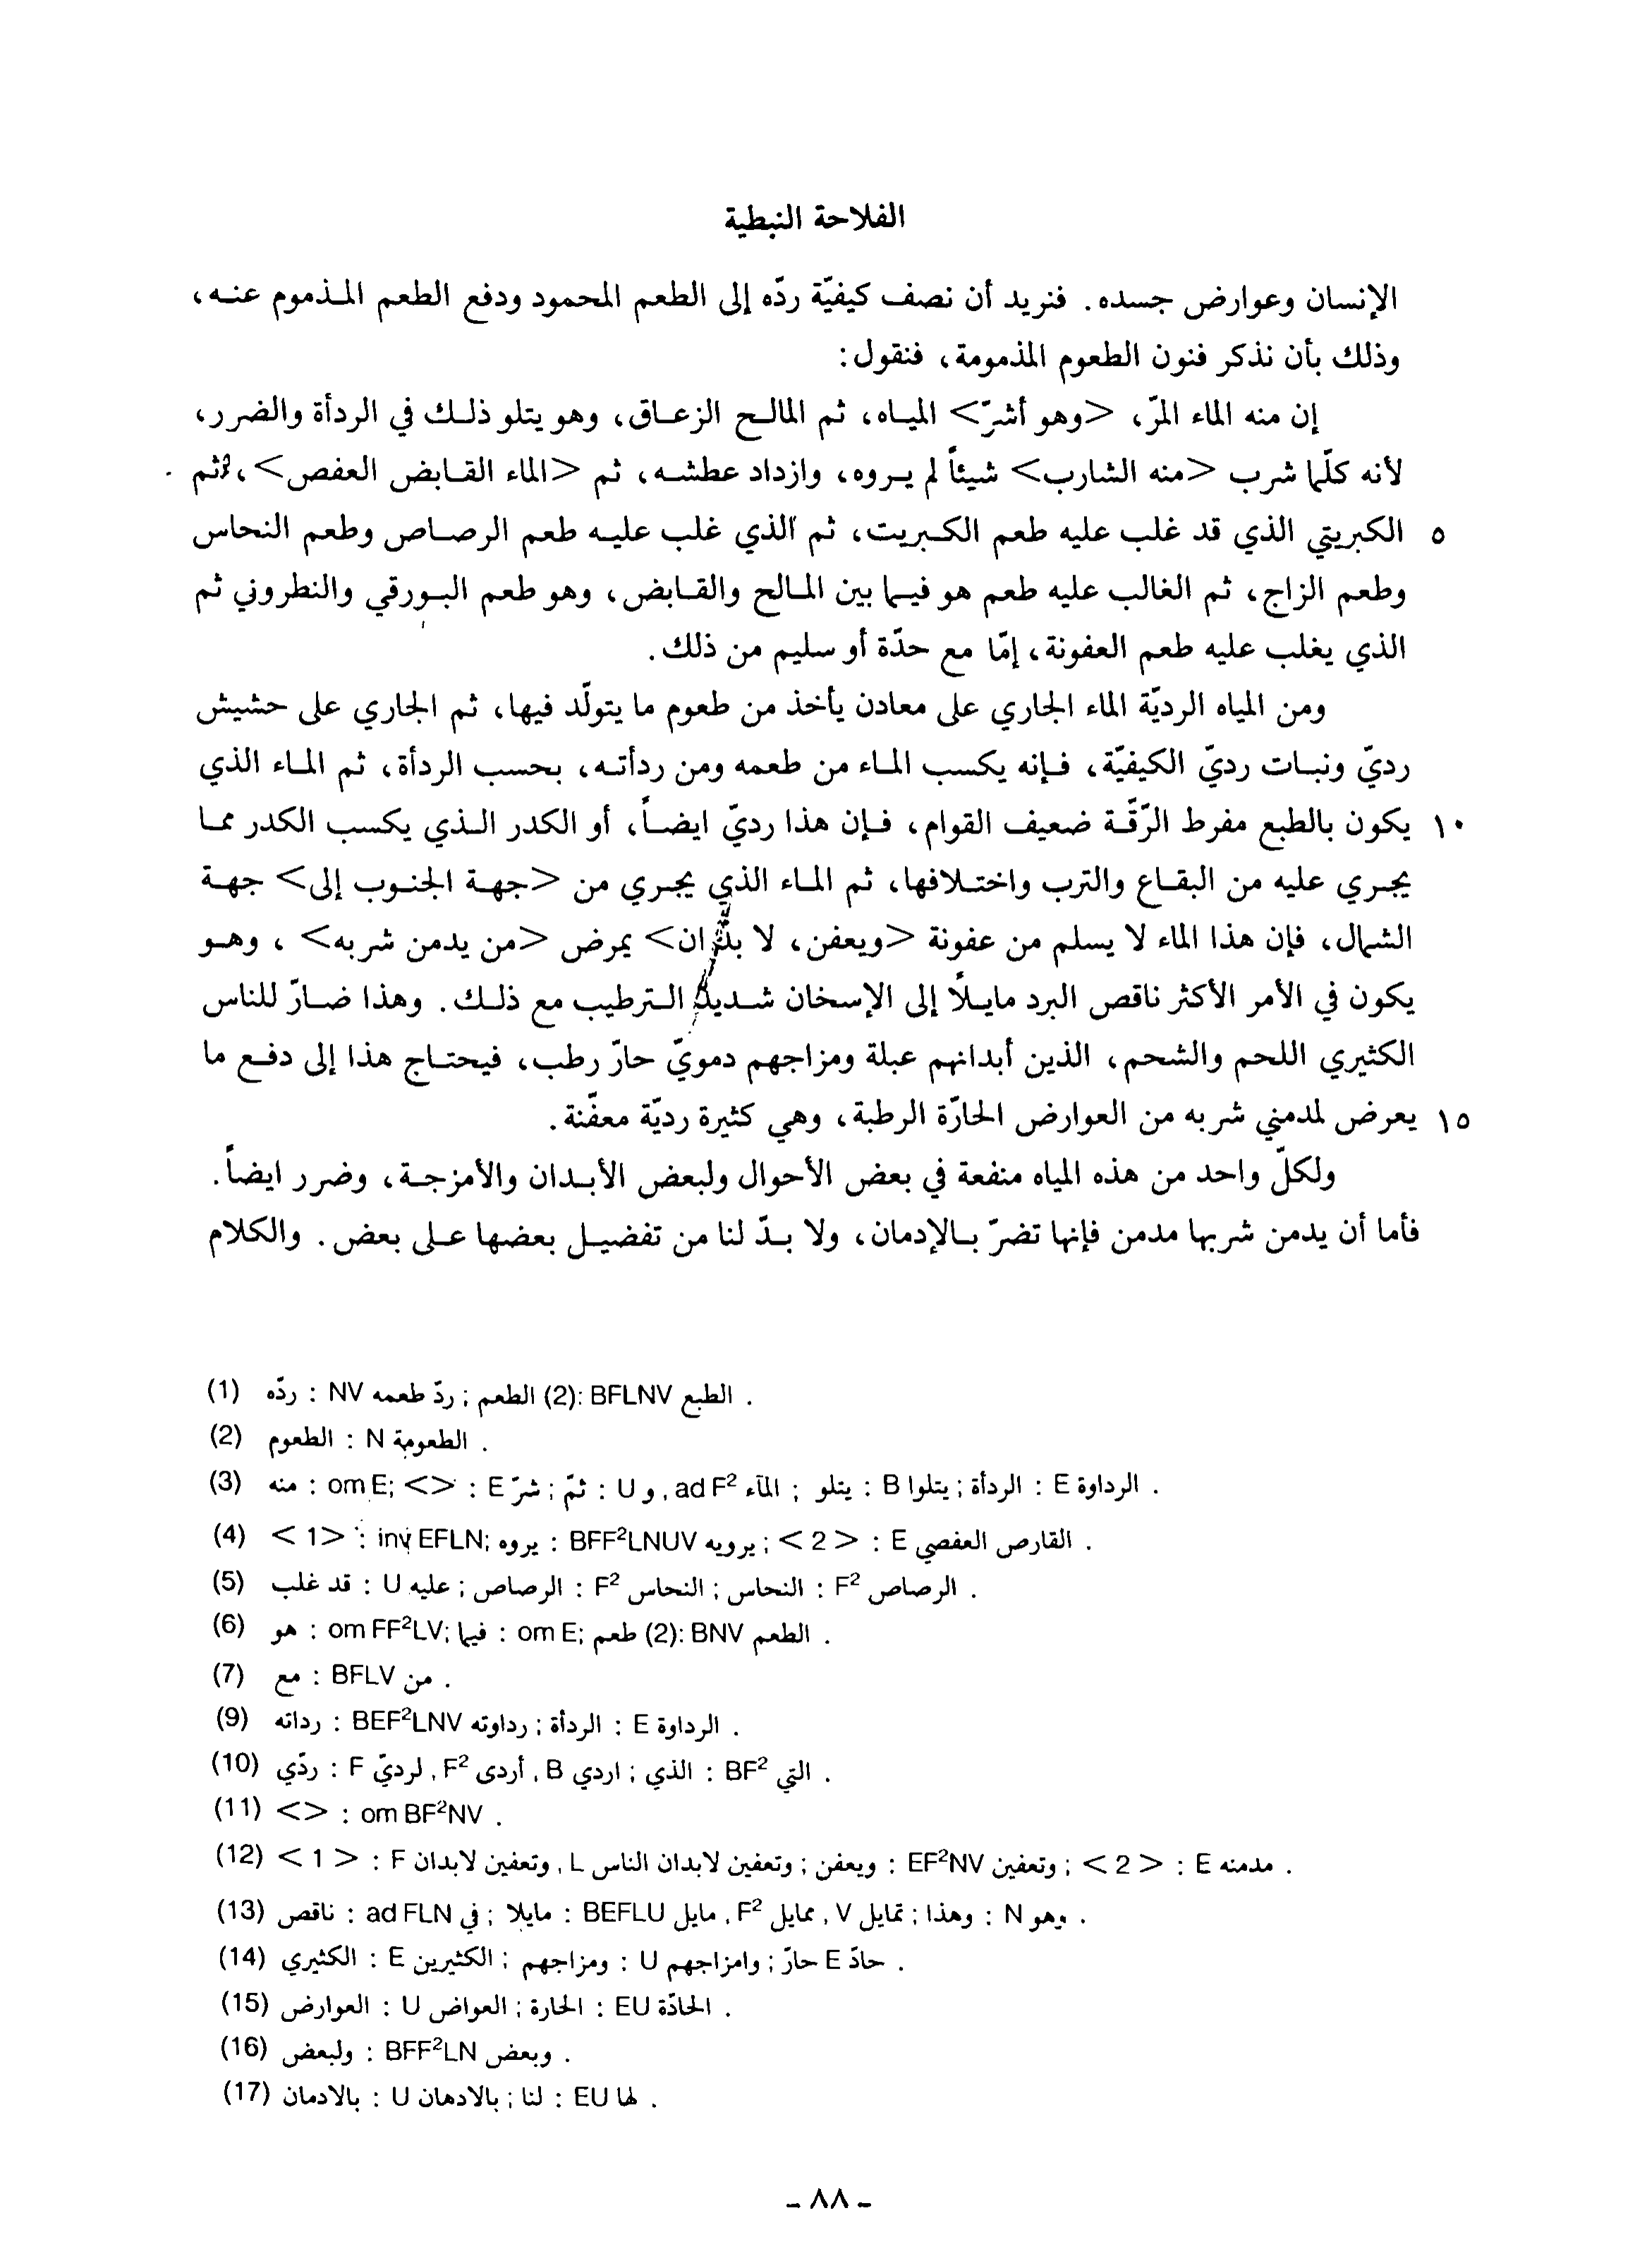 الفلاحة النبطية
الإنسان وعوارض جسده. فنريد أن نصف كيفيّة ردّه إلى الطعم المحمود ودفع الطعم المذموم عنه،
وذلك بأن نذكر فنون الطعوم المذمومة، فنقول:
إن منه الماء المرّ، <وهو أشرّ> المياه، ثم المالح الزعاق، وهو يتلو ذلك في الردأة والضرر،
لأنه كلّما شرب <منه الشارب> شيئاً لم يروه، وازداد عطشه، ثم <الماء القابض العفص>، ثم
٥ الكبريتي الذي قد غلب عليه طعم الكبريت، ثم الذي غلب عليه طعم الرصاص وطعم النحاس
وطعم الزاج، ثم الغالب عليه طعم هو فيما بين المالح والقابض، وهو طعم البورقي والنطروني ثم
الذي يغلب عليه طعم العفونة، إمّا مع حدّة أو سليم من ذلك.
ومن المياه الرديّة الماء الجاري على معادن يأخذ من طعوم ما يتولّد فيها، ثم الجاري على حشيش
رديّ ونبات رديّ الكيفيّة، فإنه يكسب الماء من طعمه ومن ردأته، بحسب الردأة، ثم الماء الذي
١٠ يكون بالطبع مفرط الرّقّة ضعيف القوام، فإن هذا رديّ ايضاً، أو الكدر الذي يكسب الكدر مما
يجري عليه من البقاع والترب واختلافها، ثم الماء الذي يجري من <جهة الجنوب إلى> جهة
الشمال، فإن هذا الماء لا يسلم من عفونة <ويعفن، لا بدّ ان> يمرض <من يدمن شربه> ، وهو
يكون في الأمر الأكثر ناقص البرد مايلاً إلى الإسخان شديد الترطيب مع ذلك. وهذا ضارّ للناس
الكثيري اللحم والشحم، الذين أبدانهم عبلة ومزاجهم دمويّ حارّ رطب، فيحتاج هذا إلى دفع ما
١٥ يعرض لمدمني شربه من العوارض الحارّة الرطبة، وهي كثيرة رديّة معفّنة.
ولكلّ واحد من هذه المياه منفعة في بعض الأحوال ولبعض الأبدان والأمزجة، وضرر ايضاً.
فأما أن يدمن شربها مدمن فإنها تضرّ بالإدمان، ولا بدّ لنا من تفضيل بعضها على بعض. والكلام
(1) ردّه : NV ردّ طعمه ; الطعم (2): BFLNV الطبع .
(2) الطعوم : N الطعومة .
(3) منه : om E; <> : E شرّ ; ثمّ : U و, ad F² المآء ; يتلو : B يتلوا ; الردأة : E الرداوة .
(4) <1> : inv EFLN; يروه : BFF²LNUV يرويه ; <2> : E القارص العفصي .
(5) قد غلب : U عليه ; الرصاص : F² النحاس ; النحاس : F² الرصاص .
(6) هو : om FF²LV; فيما : om E; طعم (2): BNV الطعم .
(7) مع : BFLV من .
(9) رداته : BEF²LNV رداوته ; الردأة : E الرداوة .
(10) ردّي : F لرديّ, F² أردى, B اردي ; الذي : BF² التي .
(11) <> : om BF²NV .
(12) <1> : F وتعفين لابدان, L وتعفين لابدان الناس ; ويعفن : EF²NV وتعفين ; <2> : E مدمنه .
(13) ناقص : ad FLN في ; مايلا : BEFLU مايل, F² ممايل, V تمايل ; وهذا : N وهو .
(14) الكثيري : E الكثيرين ; ومزاجهم : U وامزاجهم ; حارّ E حادّ .
(15) العوارض : U العواض ; الحارة : EU الحادّة .
(16) ولبعض : BFF²LN وبعض .
(17) بالادمان : U بالادهان ; لنا : EU لها .
- ٨٨ -